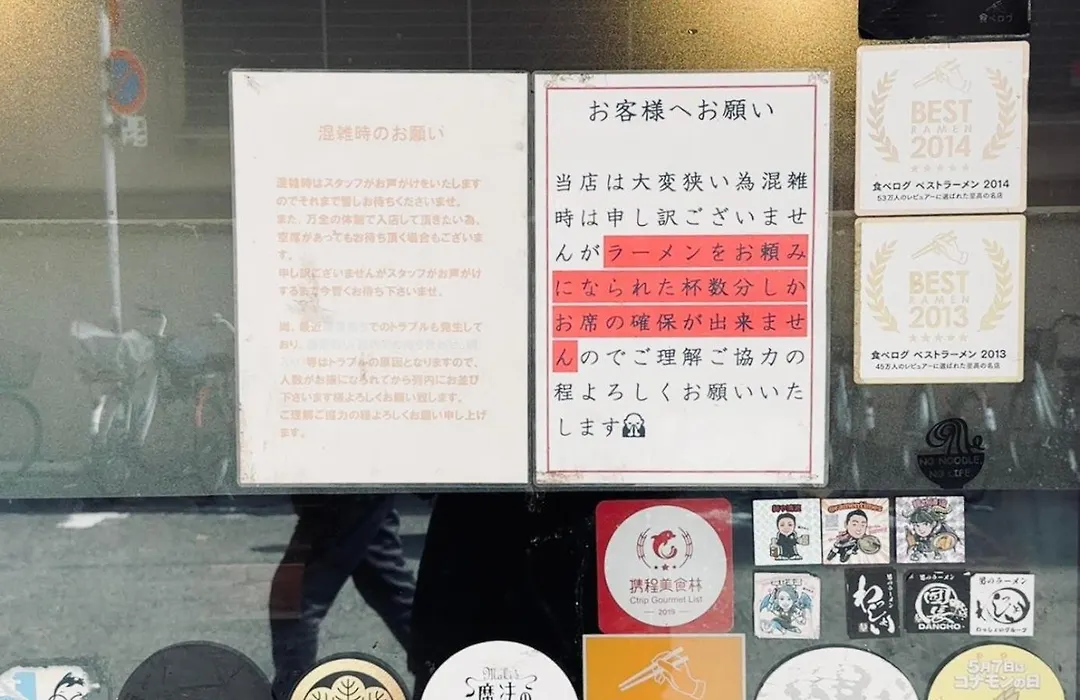 混雑時のお願い
混雑時はスタッフがお声がけをいたします
のでそれまで暫しお待ちくださいませ。
また、万全の体制で入店して頂きたい為、
空席があってもお待ち頂く場合もございま
す。
申し訳ございませんがスタッフがお声がけ
する迄今暫くお待ち下さいませ。
尚、最近
でのトラブルも発生して
おり、
等はトラブルの原因となりますので、
人数がお揃になられてから列内にお並び
下さいます様よろしくお願い致します。
ご理解ご協力の程よろしくお願い申し上げ
ます。
お客様へお願い
当店は大変狭い為混雑
時は申し訳ございませ
んがラーメンをお頼み
になられた杯数分しか
お席の確保が出来ませ
んのでご理解ご協力の
程よろしくお願いいた
します
食べログ
BEST
RAMEN
2014
食べログ ベストラーメン 2014
53万人のレビュアーに選ばれた至高の名店
BEST
RAMEN
2013
食べログ ベストラーメン 2013
45万人のレビュアーに選ばれた至高の名店
NO NOODLE
NO LIFE
携程美食林
Ctrip Gourmet List
2019
男のラーメン
わっしょい
男のラーメン
團長
DANCHO
男のラーメン
わっしょいグループ
魔法の
5月7日は
コナモンの日